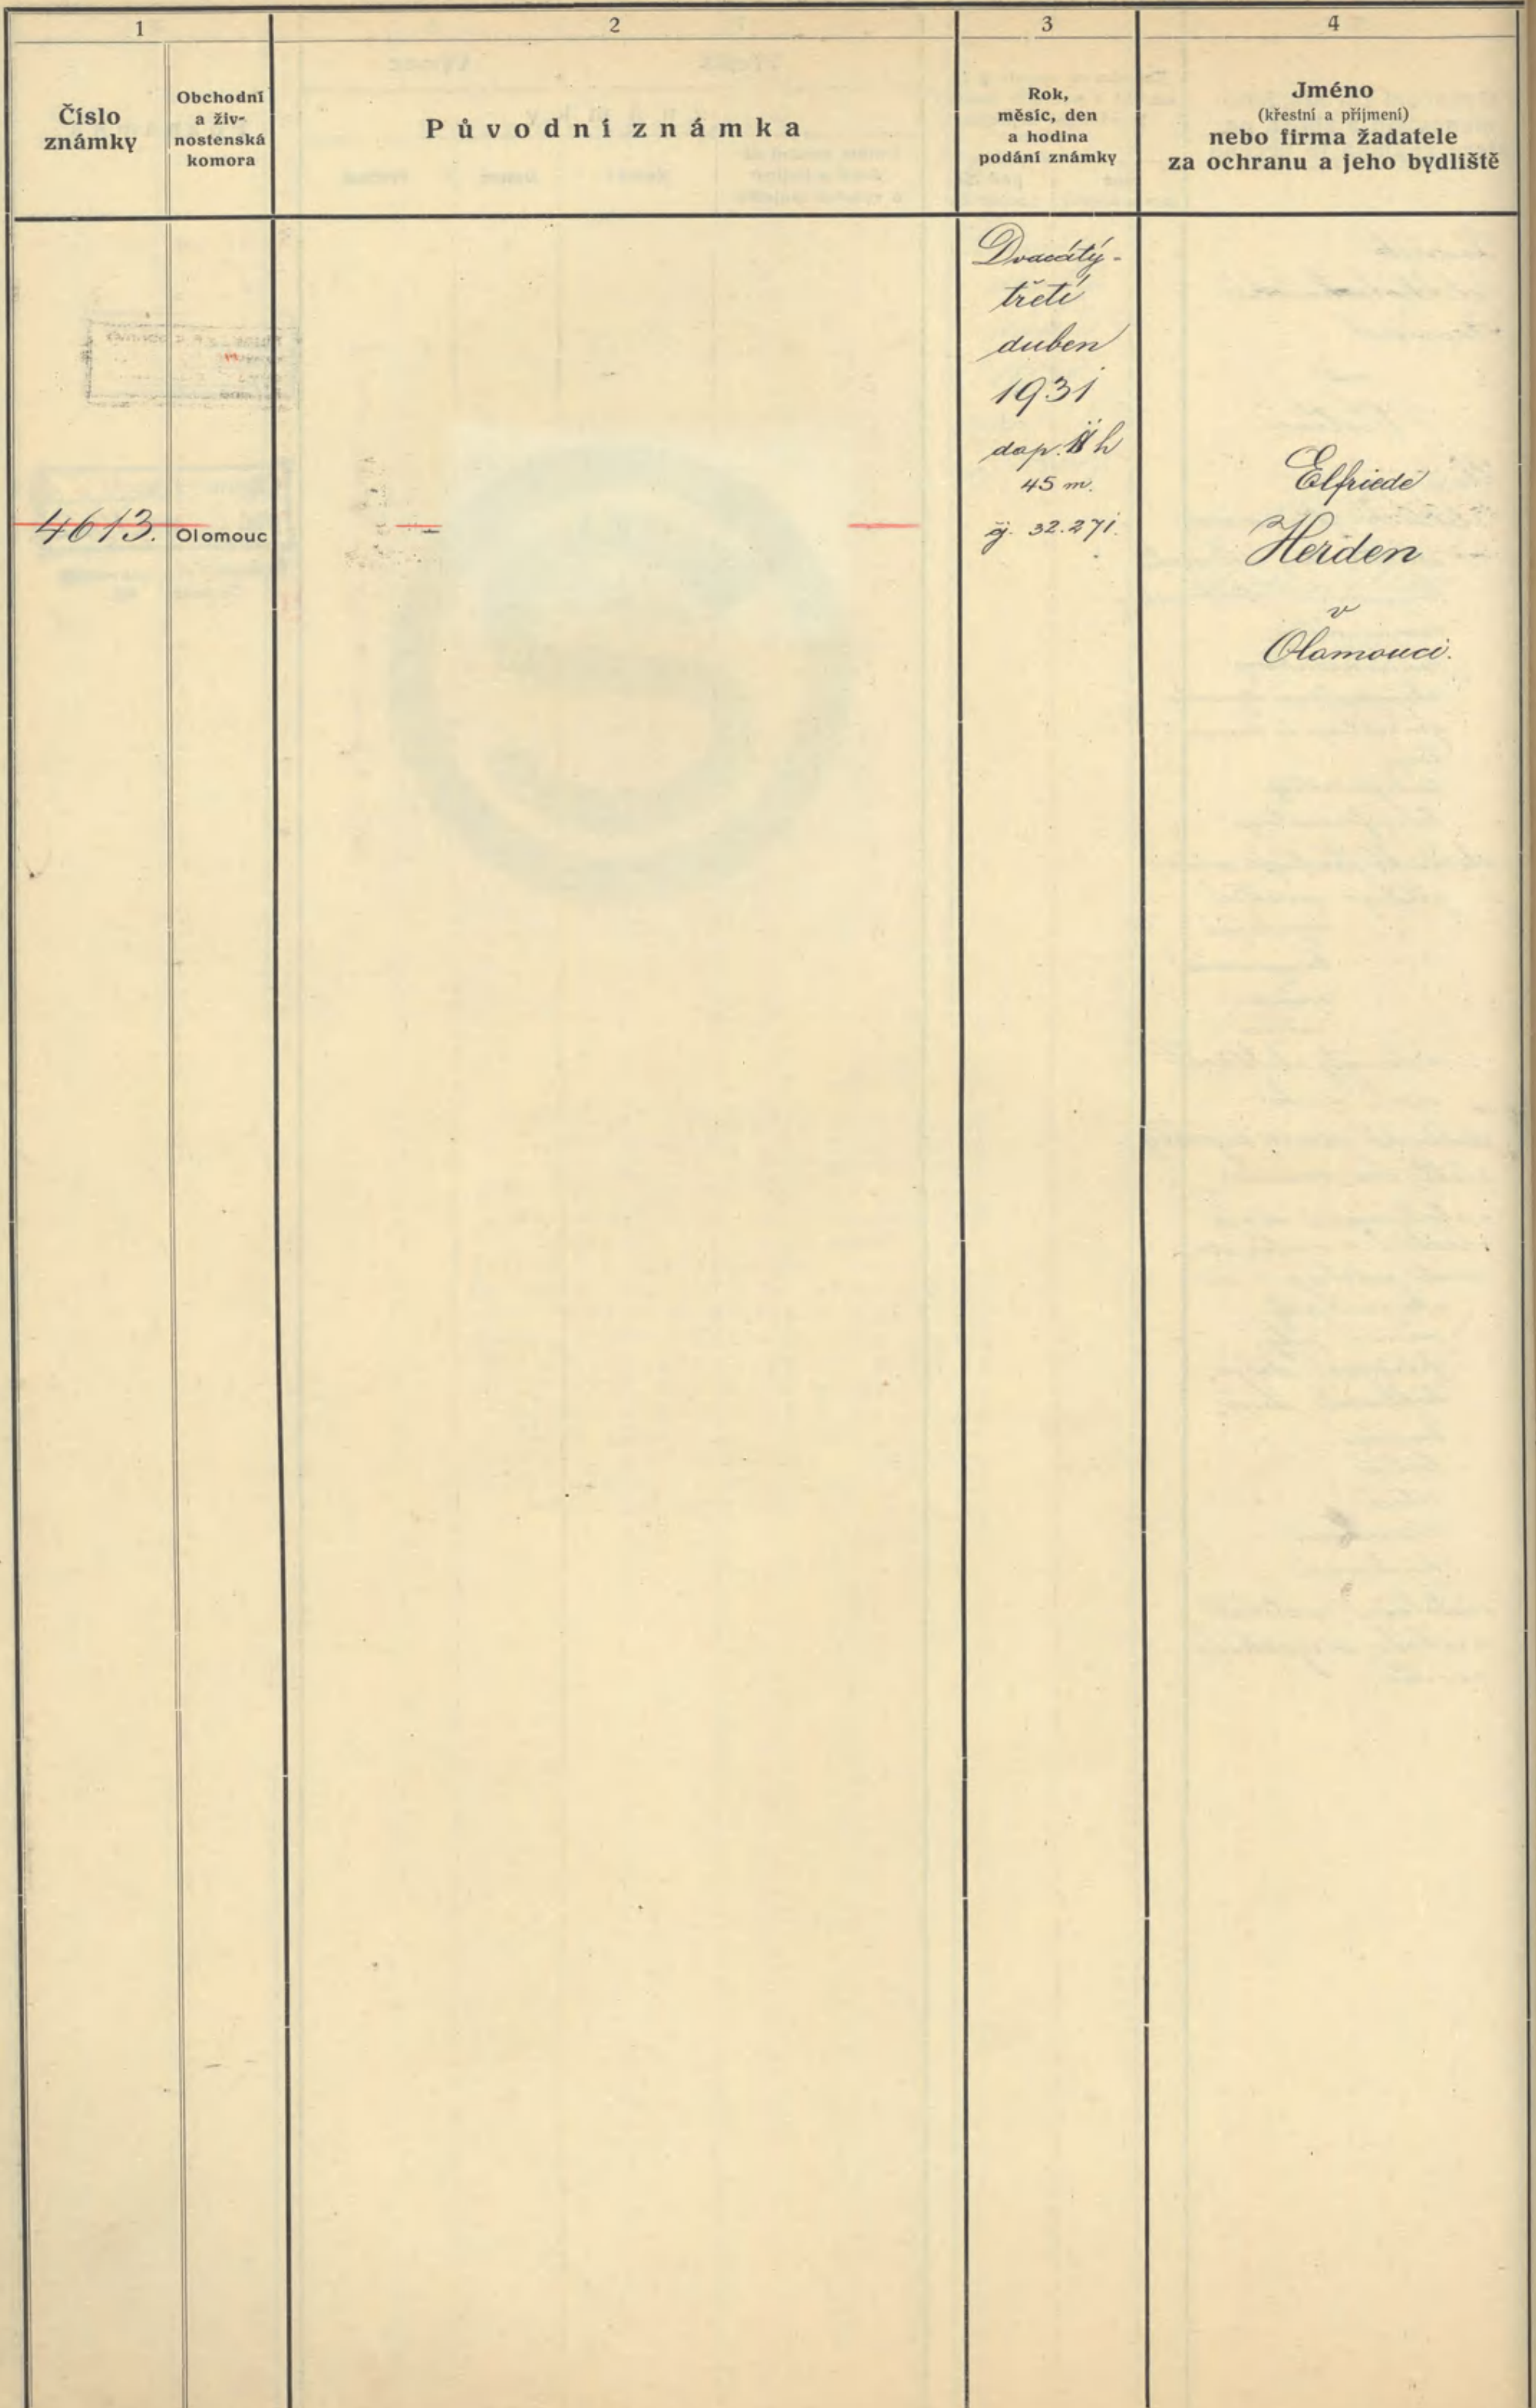 1
2
3
4
Číslo
známky
Obchodní
a živ-
nostenská
komora
Původní známka
Rok,
měsíc, den
a hodina
podání známky
Jméno
(křestní a příjmení)
nebo firma žadatele
za ochranu a jeho bydliště
4613.
Olomouc
Dvacátý-
třetí
duben
1931
dop. 11 h
45 m.
čj. 32.271.
Elfriede
Herden
v
Olomouci.